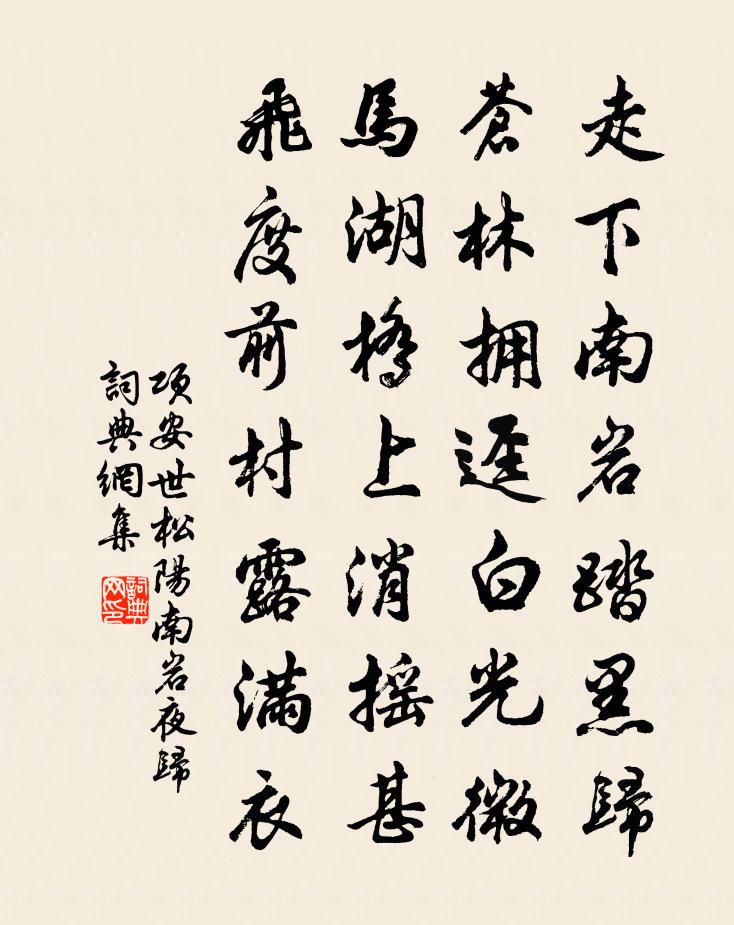 走下南岩踏黑歸
蒼林拥逕白光微
馬湖橋上消摇甚
飛度前村露滿衣
項安世松陽南岩夜歸
詞典網集
詞典网印